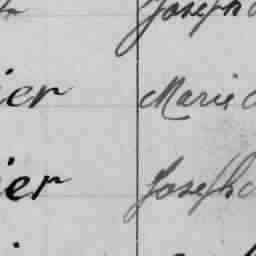 Joseph
ier Marie
ier Joseph